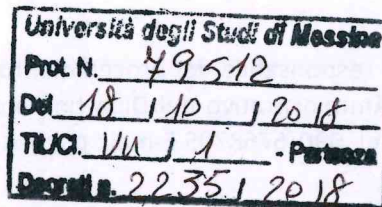 Università degli Studi di Messina
Prot. N. 79512
Del 18 / 10 / 2018
Tit./Cl. / 1 - Partenza
Decreti n. 2235 / 2018